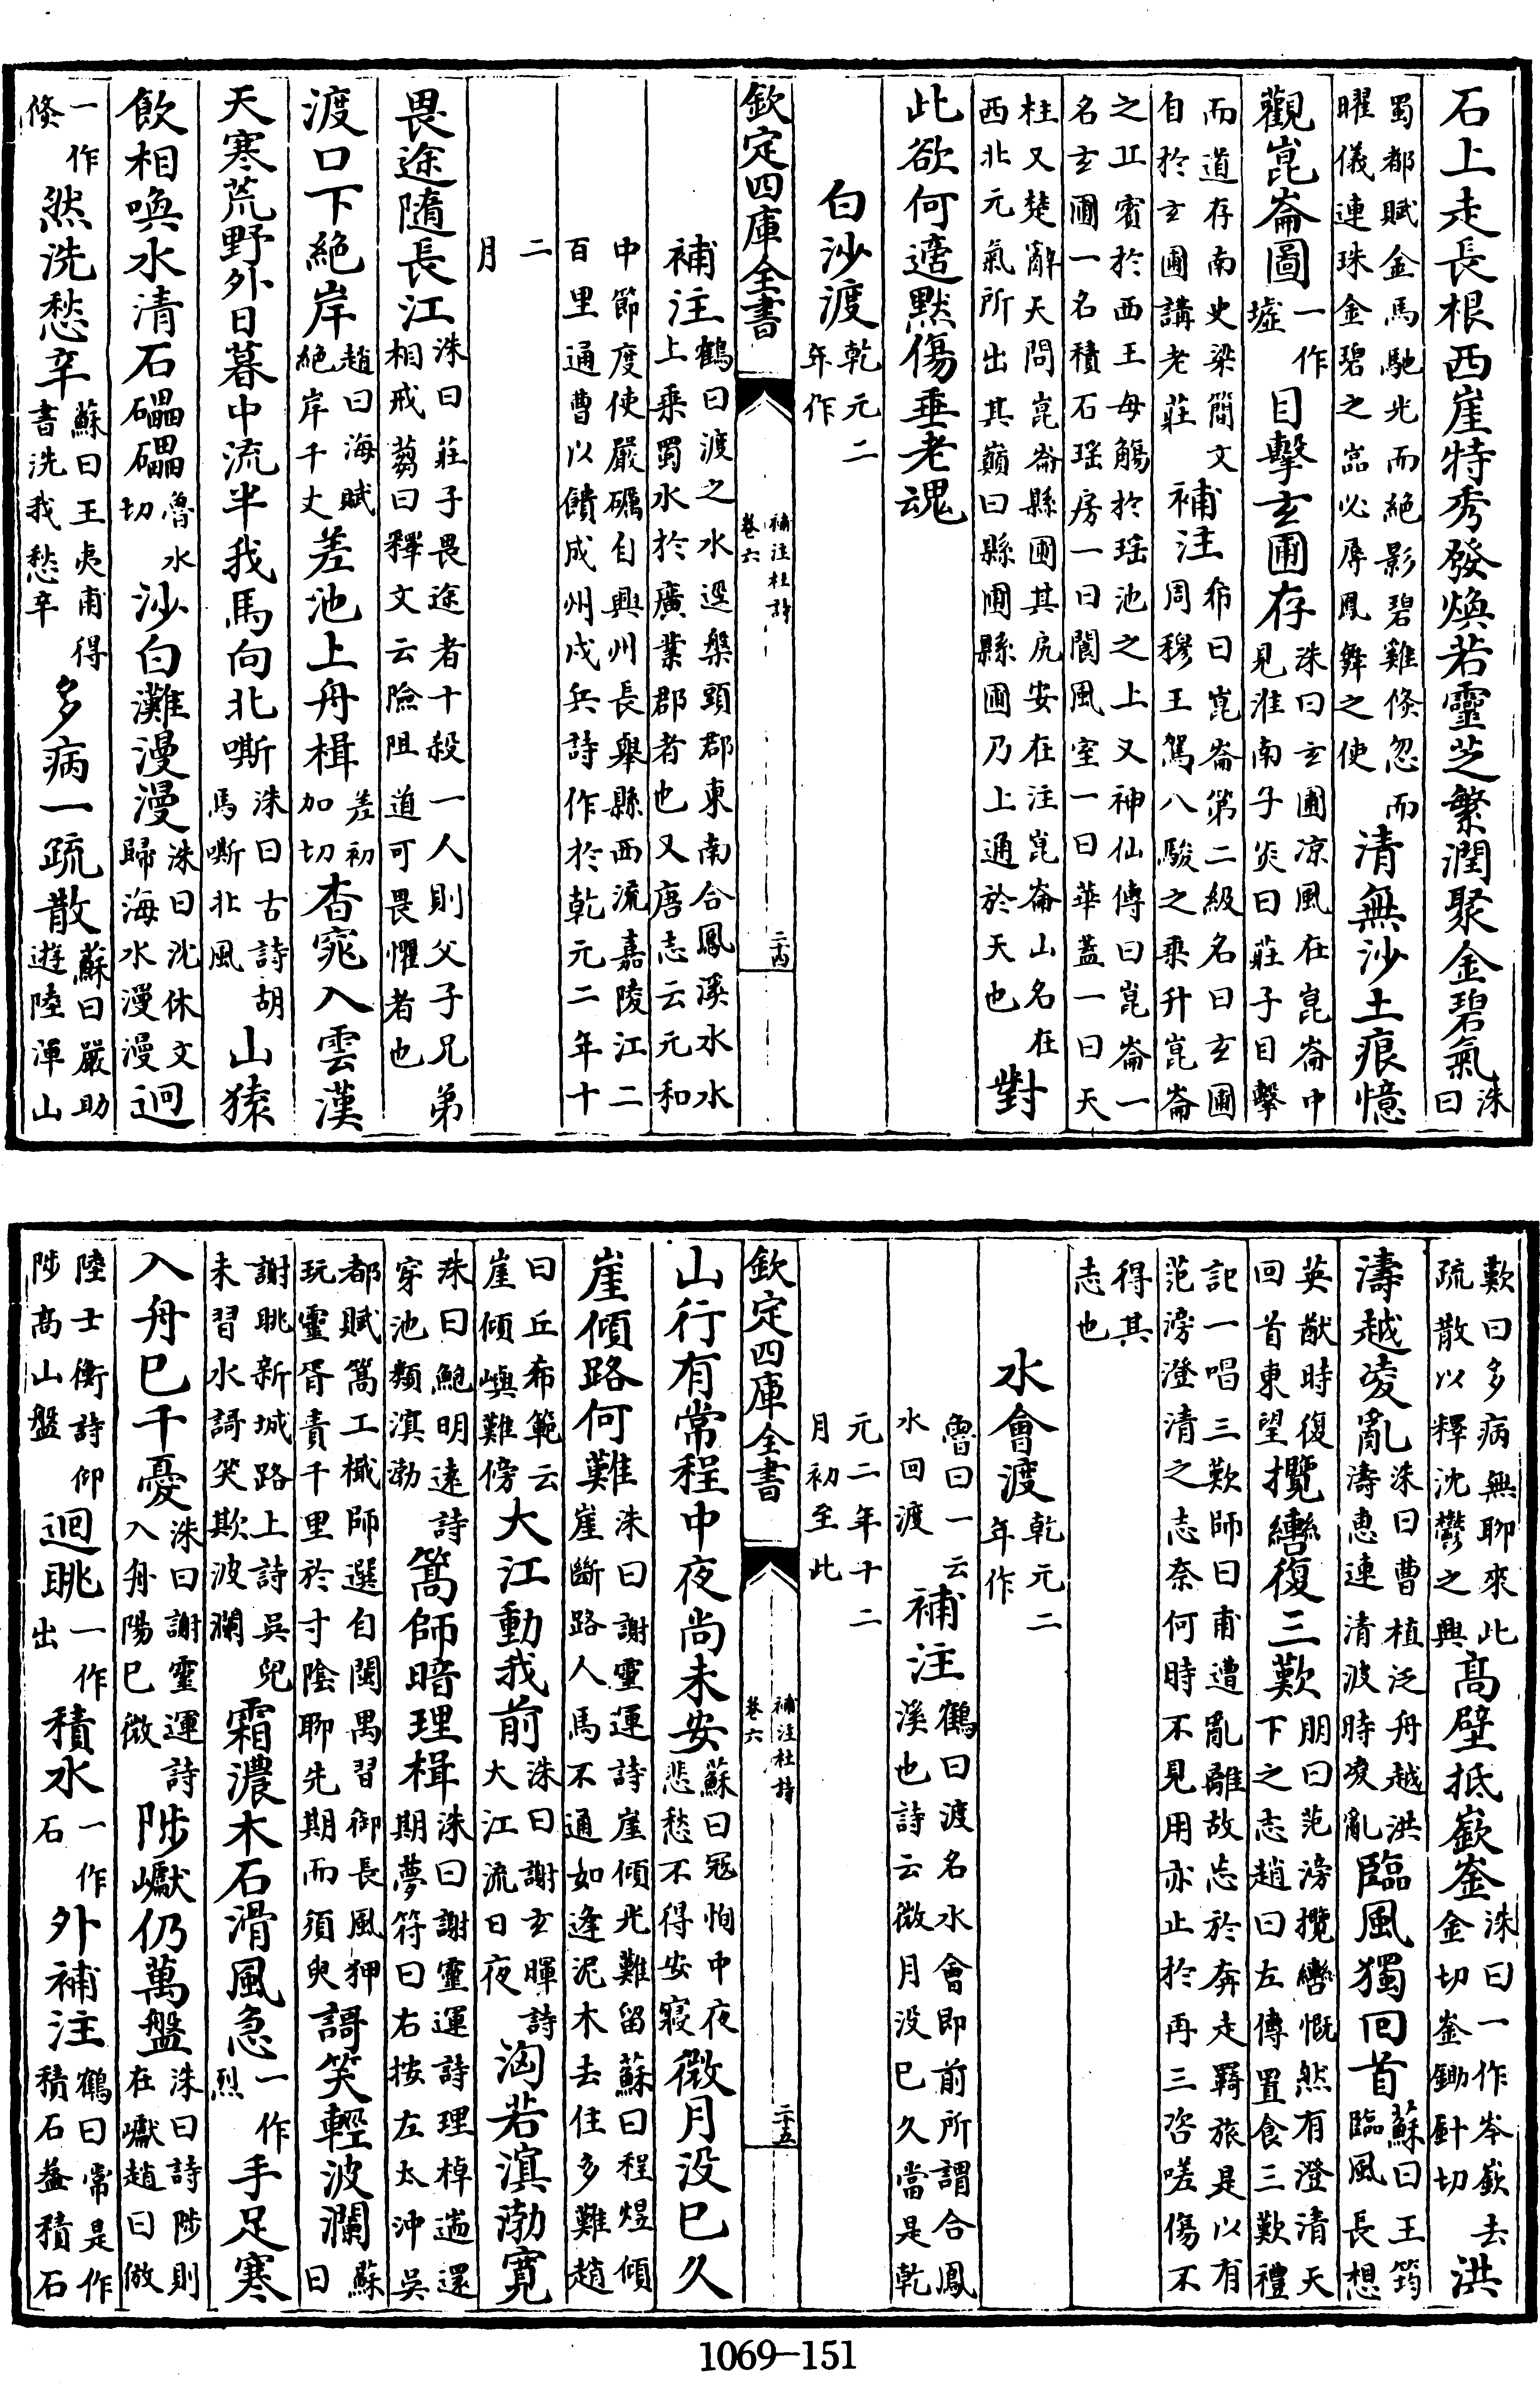 石上走長根西崖特秀發煥若靈芝繁潤聚金碧氣洙曰
蜀都賦金馬馳光而絶影碧雞倐忽而曜儀連珠金碧之嵓必辱鳳舞之使清無沙土痕憶
觀崑崙圖一作墟目擊玄圃存洙曰玄圃凉風在崑崙中見淮南子炎曰莊子目擊
而道存南史梁簡文自於玄圃講老莊補注希曰崑崙第二級名曰玄圃周穆王駕八駿之乘升崑崙
之丘賓於西王母觴於瑶池之上又神仙傳曰崑崙一名玄圃一名積石瑶房一曰閬風室一曰華蓋一曰天
柱又楚辭天問崑崙縣圃其凥安在注崑崙山名在西北元氣所出其巔曰縣圃縣圃乃上通於天也對
此欲何適黙傷垂老魂
白沙渡乾元二年作
欽定四庫全書
補注杜詩
卷六
二十四
補注鶴曰渡之水逕槃頭郡東南合鳳溪水水上乘蜀水於廣業郡者也又唐志云元和
中節度使嚴礪自興州長舉縣西流嘉陵江二百里通曹以饋成州戍兵詩作於乾元二年十
二月
畏途隨長江洙曰莊子畏途者十殺一人則父子兄弟相戒蒭曰釋文云險阻道可畏懼者也
渡口下絶岸趙曰海賦絶岸千丈差池上舟楫差初加切杳窕入雲漢
天寒荒野外日暮中流半我馬向北嘶洙曰古詩胡馬嘶北風山猿
飲相喚水清石礧礧魯水切沙白灘漫漫洙曰沈休文歸海水漫漫迥
一作倐然洗愁辛蘇曰王夷甫得書洗我愁辛多病一疏散蘇曰嚴助遊陸渾山
歎曰多病無聊來此疏散以釋沈鬱之興高壁抵嶔崟洙曰一作岑嶔去金切崟鋤針切洪
濤越凌亂洙曰曹植泛舟越洪濤惠連清波時凌亂臨風獨回首蘇曰王筠臨風長想
英猷時復回首東望攬轡復三歎朋曰范滂攬轡慨然有澄清天下之志趙曰左傳置食三歎禮
記一唱三歎師曰甫遭亂離故志於奔走羇旅是以有范滂澄清之志奈何時不見用亦止於再三咨嗟傷不
得其志也
水會渡乾元二年作
魯曰一云水回渡補注鶴曰渡名水會即前所謂合鳳溪也詩云微月没已久當是乾
元二年十二月初至此
欽定四庫全書
補注杜詩
卷六
二十五
山行有常程中夜尚未安蘇曰冦恂中夜悲愁不得安寢微月没已久
崖傾路何難洙曰謝靈運詩崖傾光難留蘇曰程煜傾崖斷路人馬不通如逢泥木去住多難趙
曰丘希範云崖傾嶼難傍大江動我前洙曰謝玄暉詩大江流日夜洶若溟渤寛
珠曰鮑明遠詩穿池類溟渤篙師暗理楫洙曰謝靈運詩理棹遄還期夢符曰右按左太沖吳
都賦篙工檝師選自閩禺習御長風狎玩靈胥責千里於寸陰聊先期而須臾謌笑輕波瀾蘇曰
謝眺新城路上詩吳兒未習水謌笑欺波瀾霜濃木石滑風急一作烈手足寒
入舟已千憂洙曰謝靈運詩入舟陽已微陟巘仍萬盤洙曰詩陟則在巘趙曰倣
陸士衡詩仰陟高山盤迴眺一作出積水一作石外補注鶴曰常是作積石葢積石
1069-151